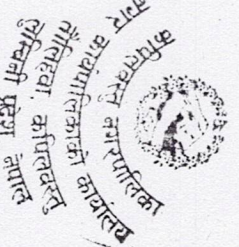 कपिलवस्तु नगरपालिका
नगर कार्यपालिकाको कार्यालय
तौलिहवा, कपिलवस्तु
लुम्बिनी प्रदेश, नेपाल